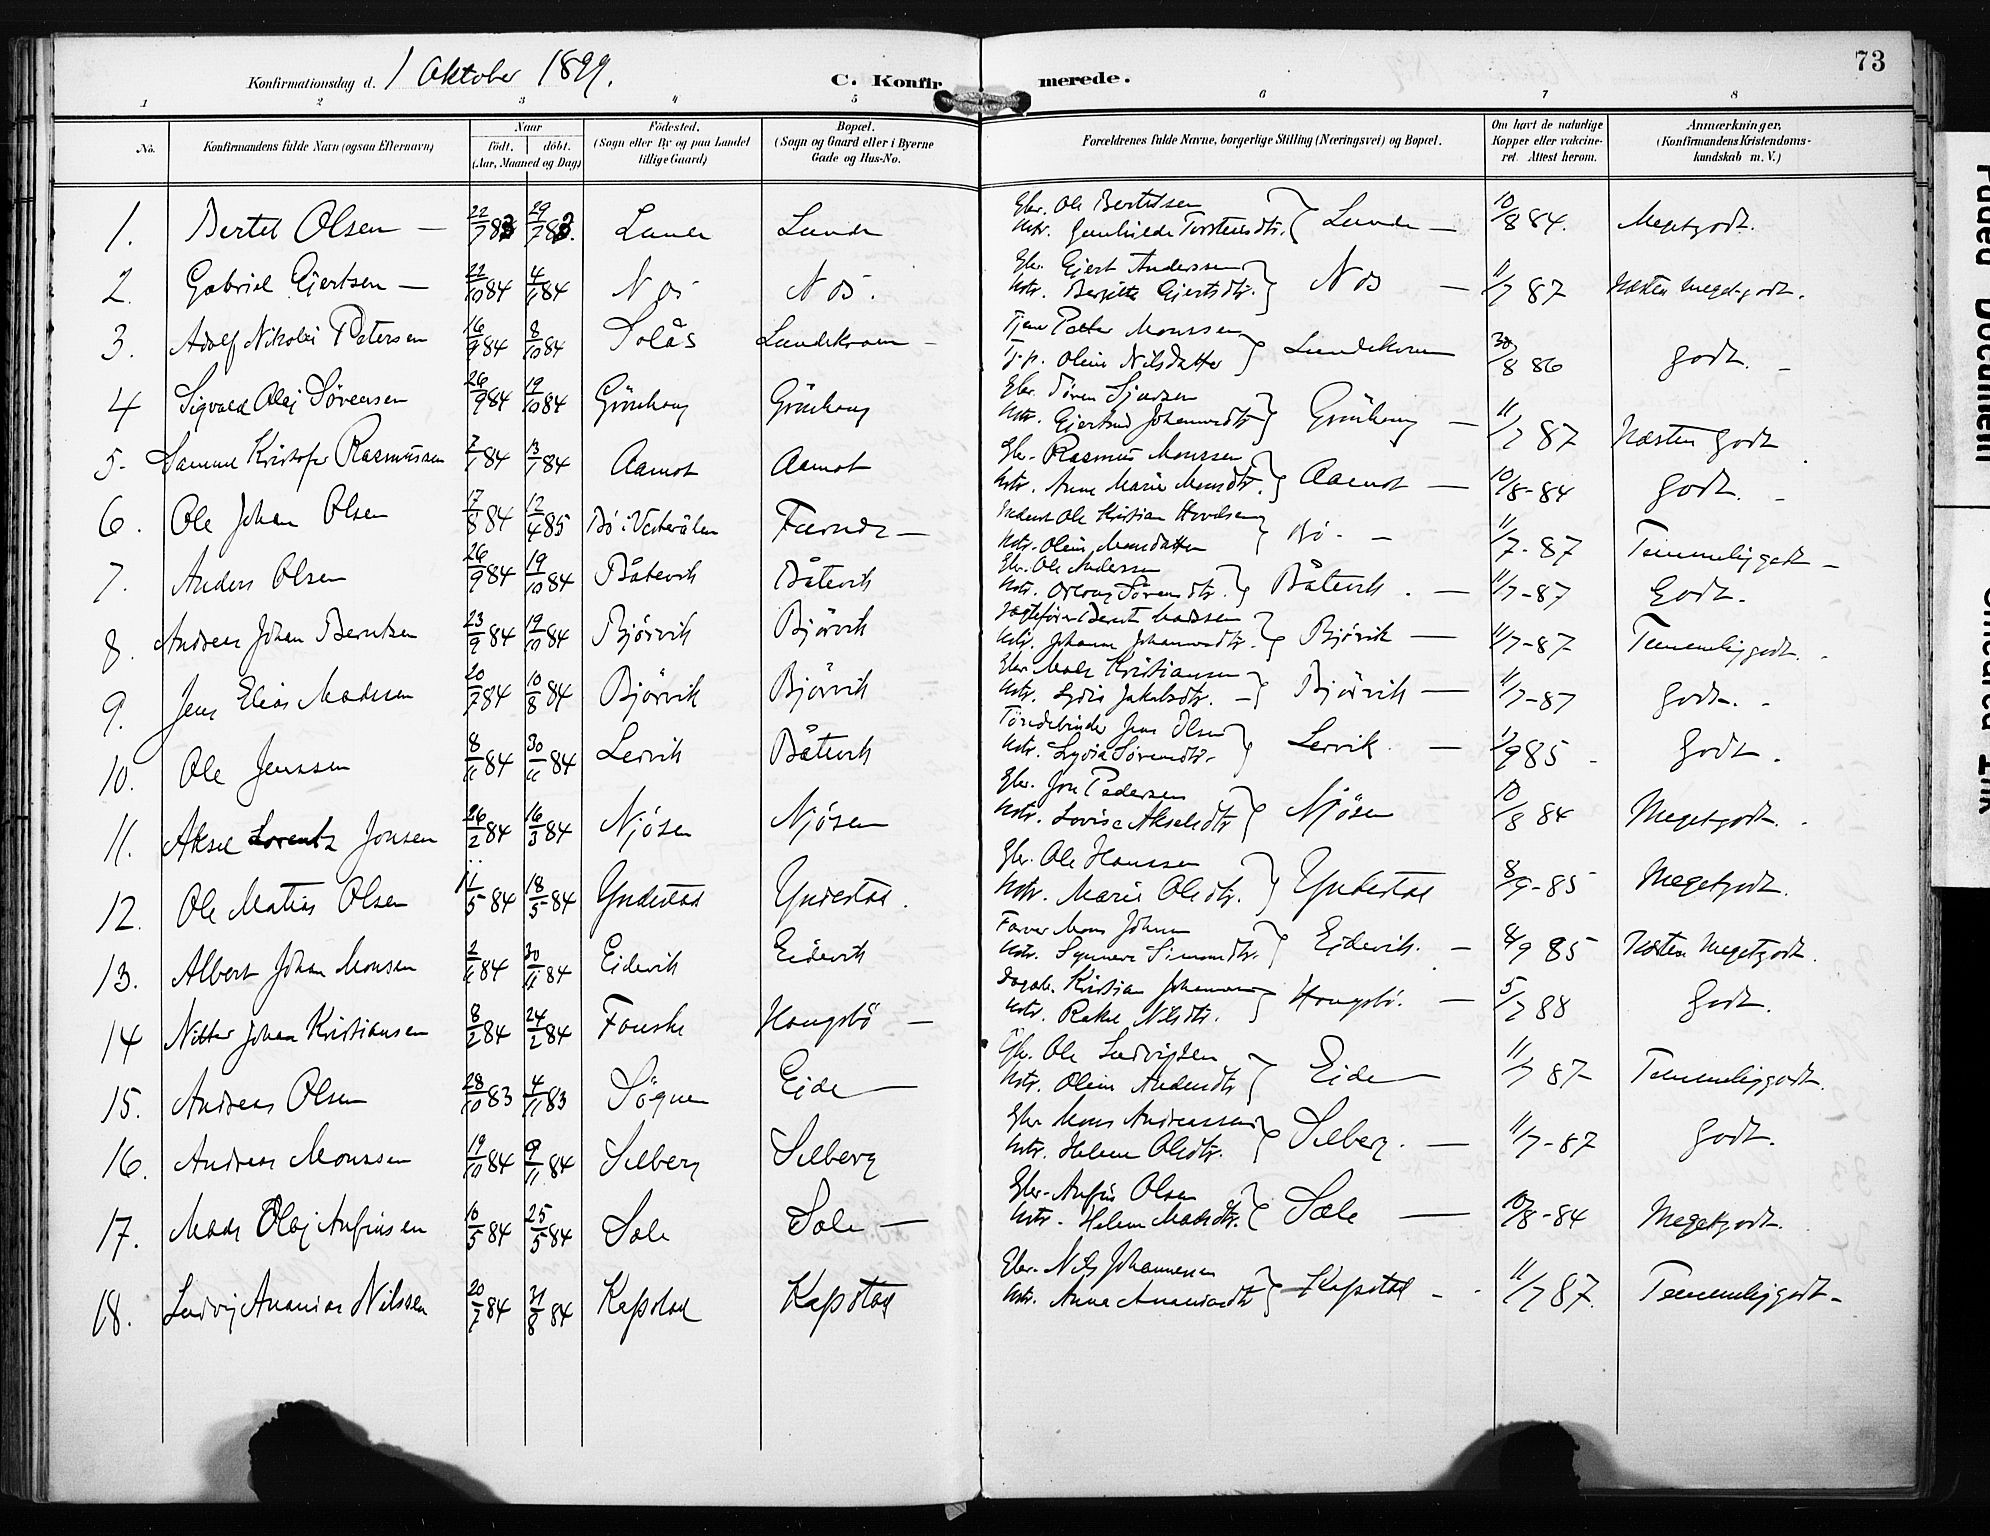 73
Konfirmationsdag d. 1 Oktober 1899.
C. Konfirmerede.
1 2 3 4 5 6 7 8
No. Konfirmandens fulde Navn (ogsaa Efternavn) Naar født. døbt. (Aar, Maaned og Dag) Fødested. (Sogn eller By og paa Landet tillige Gaard) Bopæl. (Sogn og Gaard eller i Byerne Gade og Hus-No. Forældrenes fulde Navne, borgerlige Stilling (Næringsvei) og Bopæl. Om havt de naturlige Kopper eller vakcineret. Attest herom. Anmærkninger. (Konfirmandens Kristendomskundskab m. V.)
1. Bertel Olsen — 22/7 83 29/7 83. Lunde Lunde Gbr. Ole Bertelsen Hstr. Gunhilde Torstensdtr. Lunde — 10/8 84. Megetgodt.
2. Gabriel Gjertsen — 22/10 84 Nos Nos. Gbr. Gjert Anderssen Hstr. Gjertsdtr. Nos — 11/7 87 Næsten megetgodt.
3. Adolf Nikolai Petersen 16/9 84 8/10 84 Solås Petter Monssen Oline Nilsdatter 30/8 86 godt. -
4 Sigvald Olaj Sørensen 26/9 84 19/10 84 Grönhaug Grönhaug Gbr. Sören Hstr. Gjertrud Grönhaug — 11/7 87 Næsten godt
5. Kristofer Rasmussen 84 84 Aamot Aamot Gbr. Rasmus Monssen Hstr. Anne Marie Monsdtr. Aamot — 10/8-84 godt. -
6. Ole Johan Olsen 17/8 84 12/4 85 Bö i Vesterålen — Ole Kristian Hstr. Oline Monsdatter Bö. — 11/7-87 Temmeliggodt —
7. Anders Olsen 26/9 84 19/10 84 Båtevik Båtevik Gbr. Ole Andersen Hstr. Sörensdtr. Båtevik. — 11/7-87 Godt.
8. Andreas Johan Berntsen 23/9 84 19/10 84 Bjørvik Bjørvik Bernt Madssen Hstr. Johanne Bjørvik — 11/7-87 Temmeliggodt.
9. Jens Elias Madssen 20/7 84 10/8 84 Bjørvik Bjørvik Gbr. Mads Kristiansen Hstr. Lydia Jakobsdtr. — Bjørvik — 11/7-87 godt.
10. Ole Jenssen 8/11 84 30/11 84 Lervik Båtevik Töndebinder Jens Olsen Hstr. Lydia Sörensdtr. Lervik. — 85 Godt.
11. Aksel Lorentz Jonsen 26/2 84 16/3 84 Njösen Njösen Gbr. Jon Pedersen Hstr. Lovise Akselsdtr Njösen 10/8 84 Megetgodt.
12. Ole Matias Olsen 11/5 84 18/5 84 Yndestad Yndestad. Gbr. Ole Hanssen Hstr. Marie Olsdtr. Yndestad 8/9-85 Megetgodt.
13. Albert Johan Monsen 2/11 84 30/11 84 Eidevik Eidevik Mons Johnsen Hstr. Synneve Simonsdtr. Eidevik. — 8/9 85 Næsten Megetgodt.
14 Johan Kristiansen 8/2 84 24/2 84 Fauske Haugsbö — Kristian Johannessen Hstr. Rakel Nilsdtr. Haugsbö. — 5/7 88 Godt.
15. Andreas Olsen 28/10 83 4/11 83 Sögne Eide — Gbr. Ole Ludvigsen Hstr. Oline Andersdtr Eide — 11/7 87- Temmeliggodt.
16. Andreas Monssen 19/10 84 9/11 84 Selberg Selberg Gbr Mons Andreassen Hstr. Helene Olsdtr. Selberg. — 11/7-87 godt.
17. Mads Olaj Anfinsen 84 25/5 84 Sale Sale — Gbr. Anfin Olsen Hstr. Helene Madsdtr. Sæle — 10/8-84 Megetgodt.
18. Ludvig Ananias Nilssen 20/7 84 31/8 84 Kapstad Kapstad Gbr. Nils Johannessen Hstr. Anna Ananiasdtr Kapstad - 11/7 87. Temmeliggodt-
Faded Document
Smeared Ink